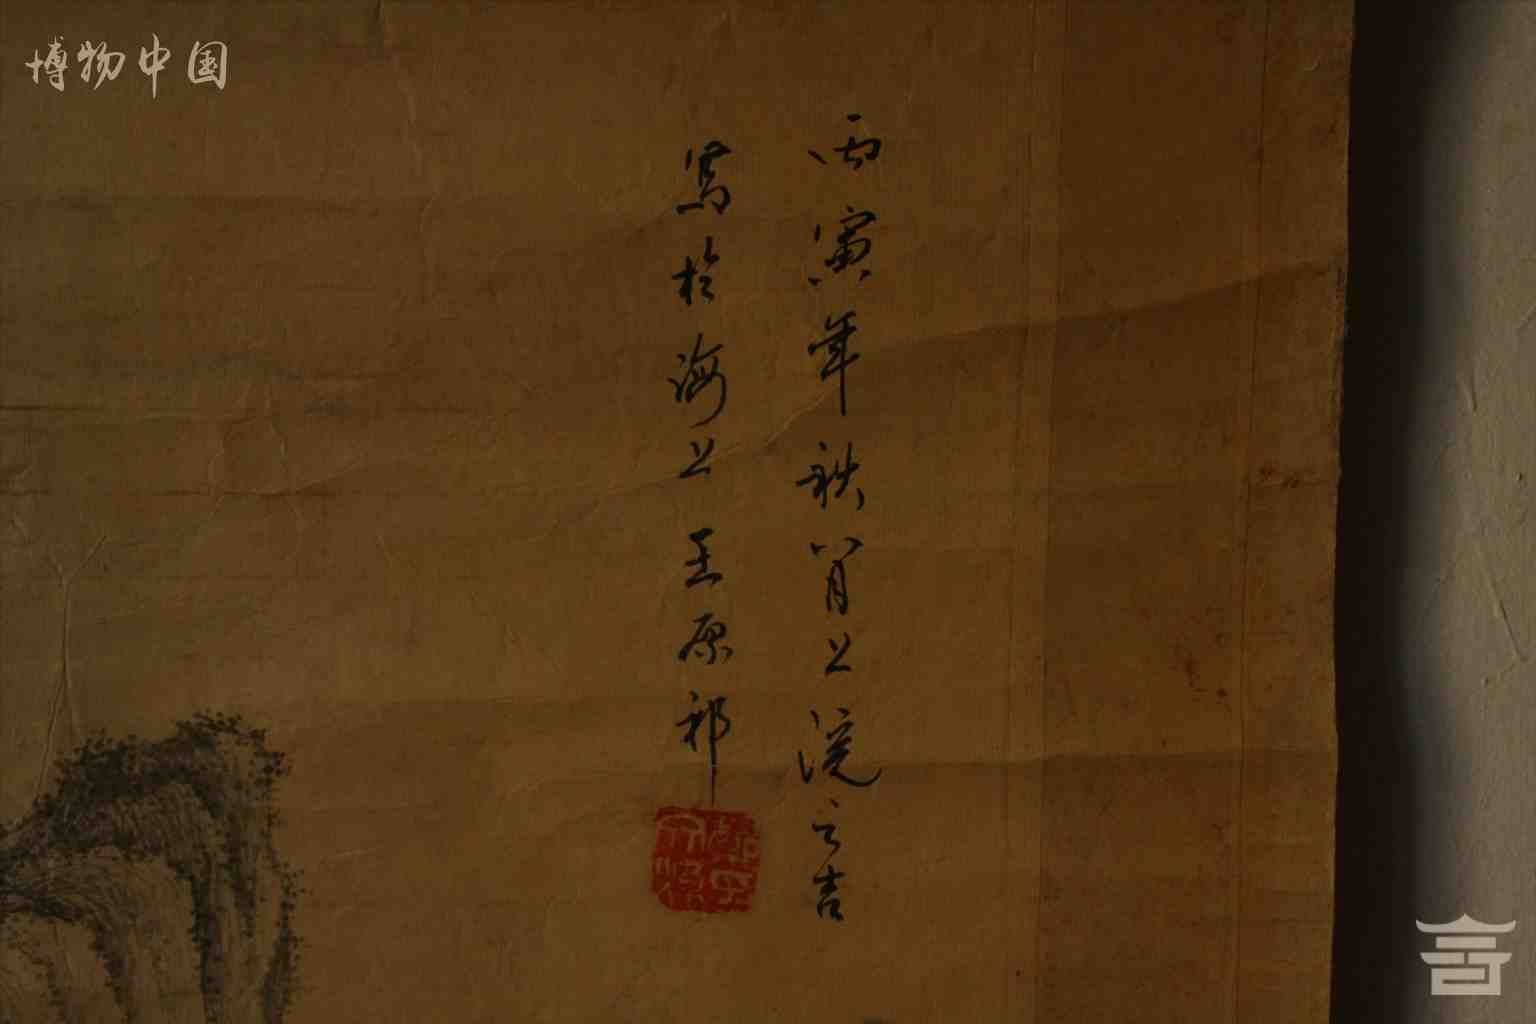 博物中国
丙寅年秋八月上浣之吉
写於海上王原祁